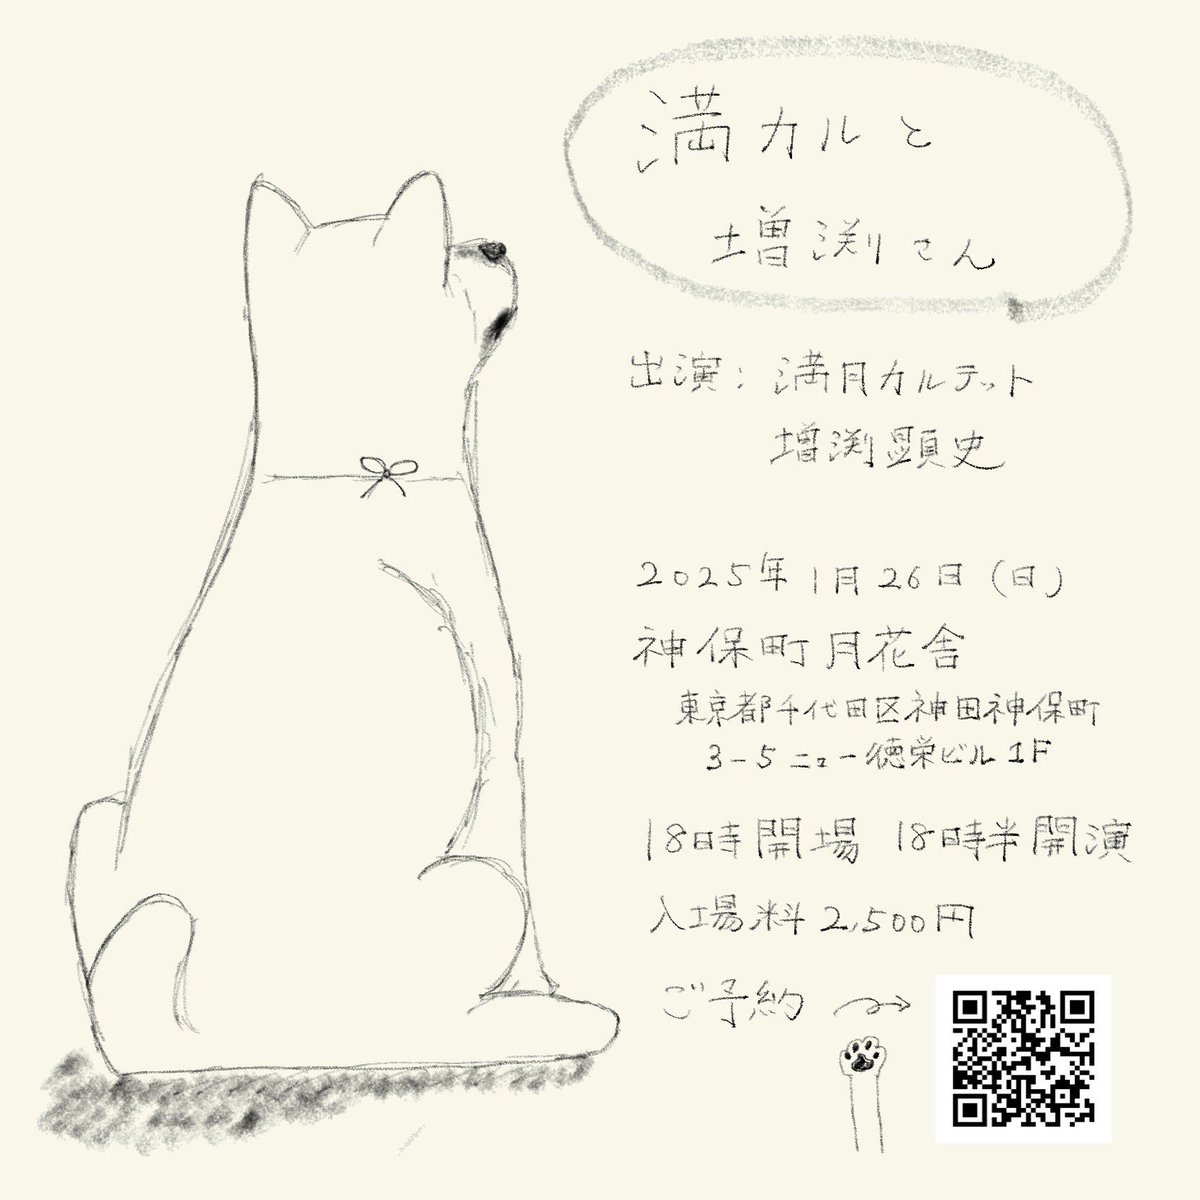 満カルと
増渕さん
出演：満月カルテット
増渕顕史
2025年1月26日（日）
神保町月花舎
東京都千代田区神田神保町
3-5 ニュー徳栄ビル1F
18時開場 18時半開演
入場料2,500円
ご予約